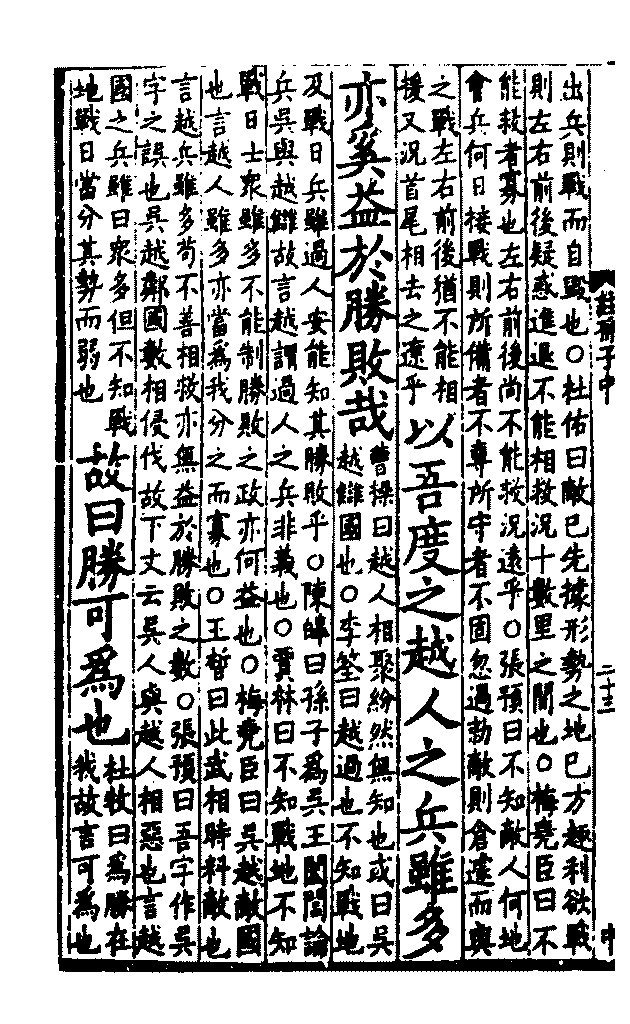 出兵則戰而自毀也○杜佑曰敵已先據形勢之地已方趣利欲戰
則左右前後疑惑進退不能相救況十數里之間也○梅堯臣曰不
能救者寡也左右前後尚不能救況遠乎○張預曰不知敵人何地
會兵何日接戰則所備者不專所守者不固忽遇勍敵則倉遽而與
之戰左右前後猶不能相
援又況首尾相去之遼乎
以吾度之越人之兵雖多
亦奚益於勝敗哉
曹操曰越人相聚紛然無知也或曰吳
越讎國也○李筌曰越過也不知戰地
及戰日兵雖過人安能知其勝敗乎○陳皥曰孫子爲吳王闔閭論
兵吳與越讎故言越謂過人之兵非義也○賈林曰不知戰地不知
戰日士衆雖多不能制勝敗之政亦何益也○梅堯臣曰吳越敵國
也言越人雖多亦當爲我分之而寡也○王晳曰此武相時料敵也
言越兵雖多苟不善相救亦無益於勝敗之數○張預曰吾字作吳
字之誤也吳越鄰國數相侵伐故下文云吳人與越人相惡也言越
國之兵雖曰衆多但不知戰
地戰日當分其勢而弱也
故曰勝可爲也
杜牧曰爲勝在
我故言可爲也
註孫子中
二十三
中